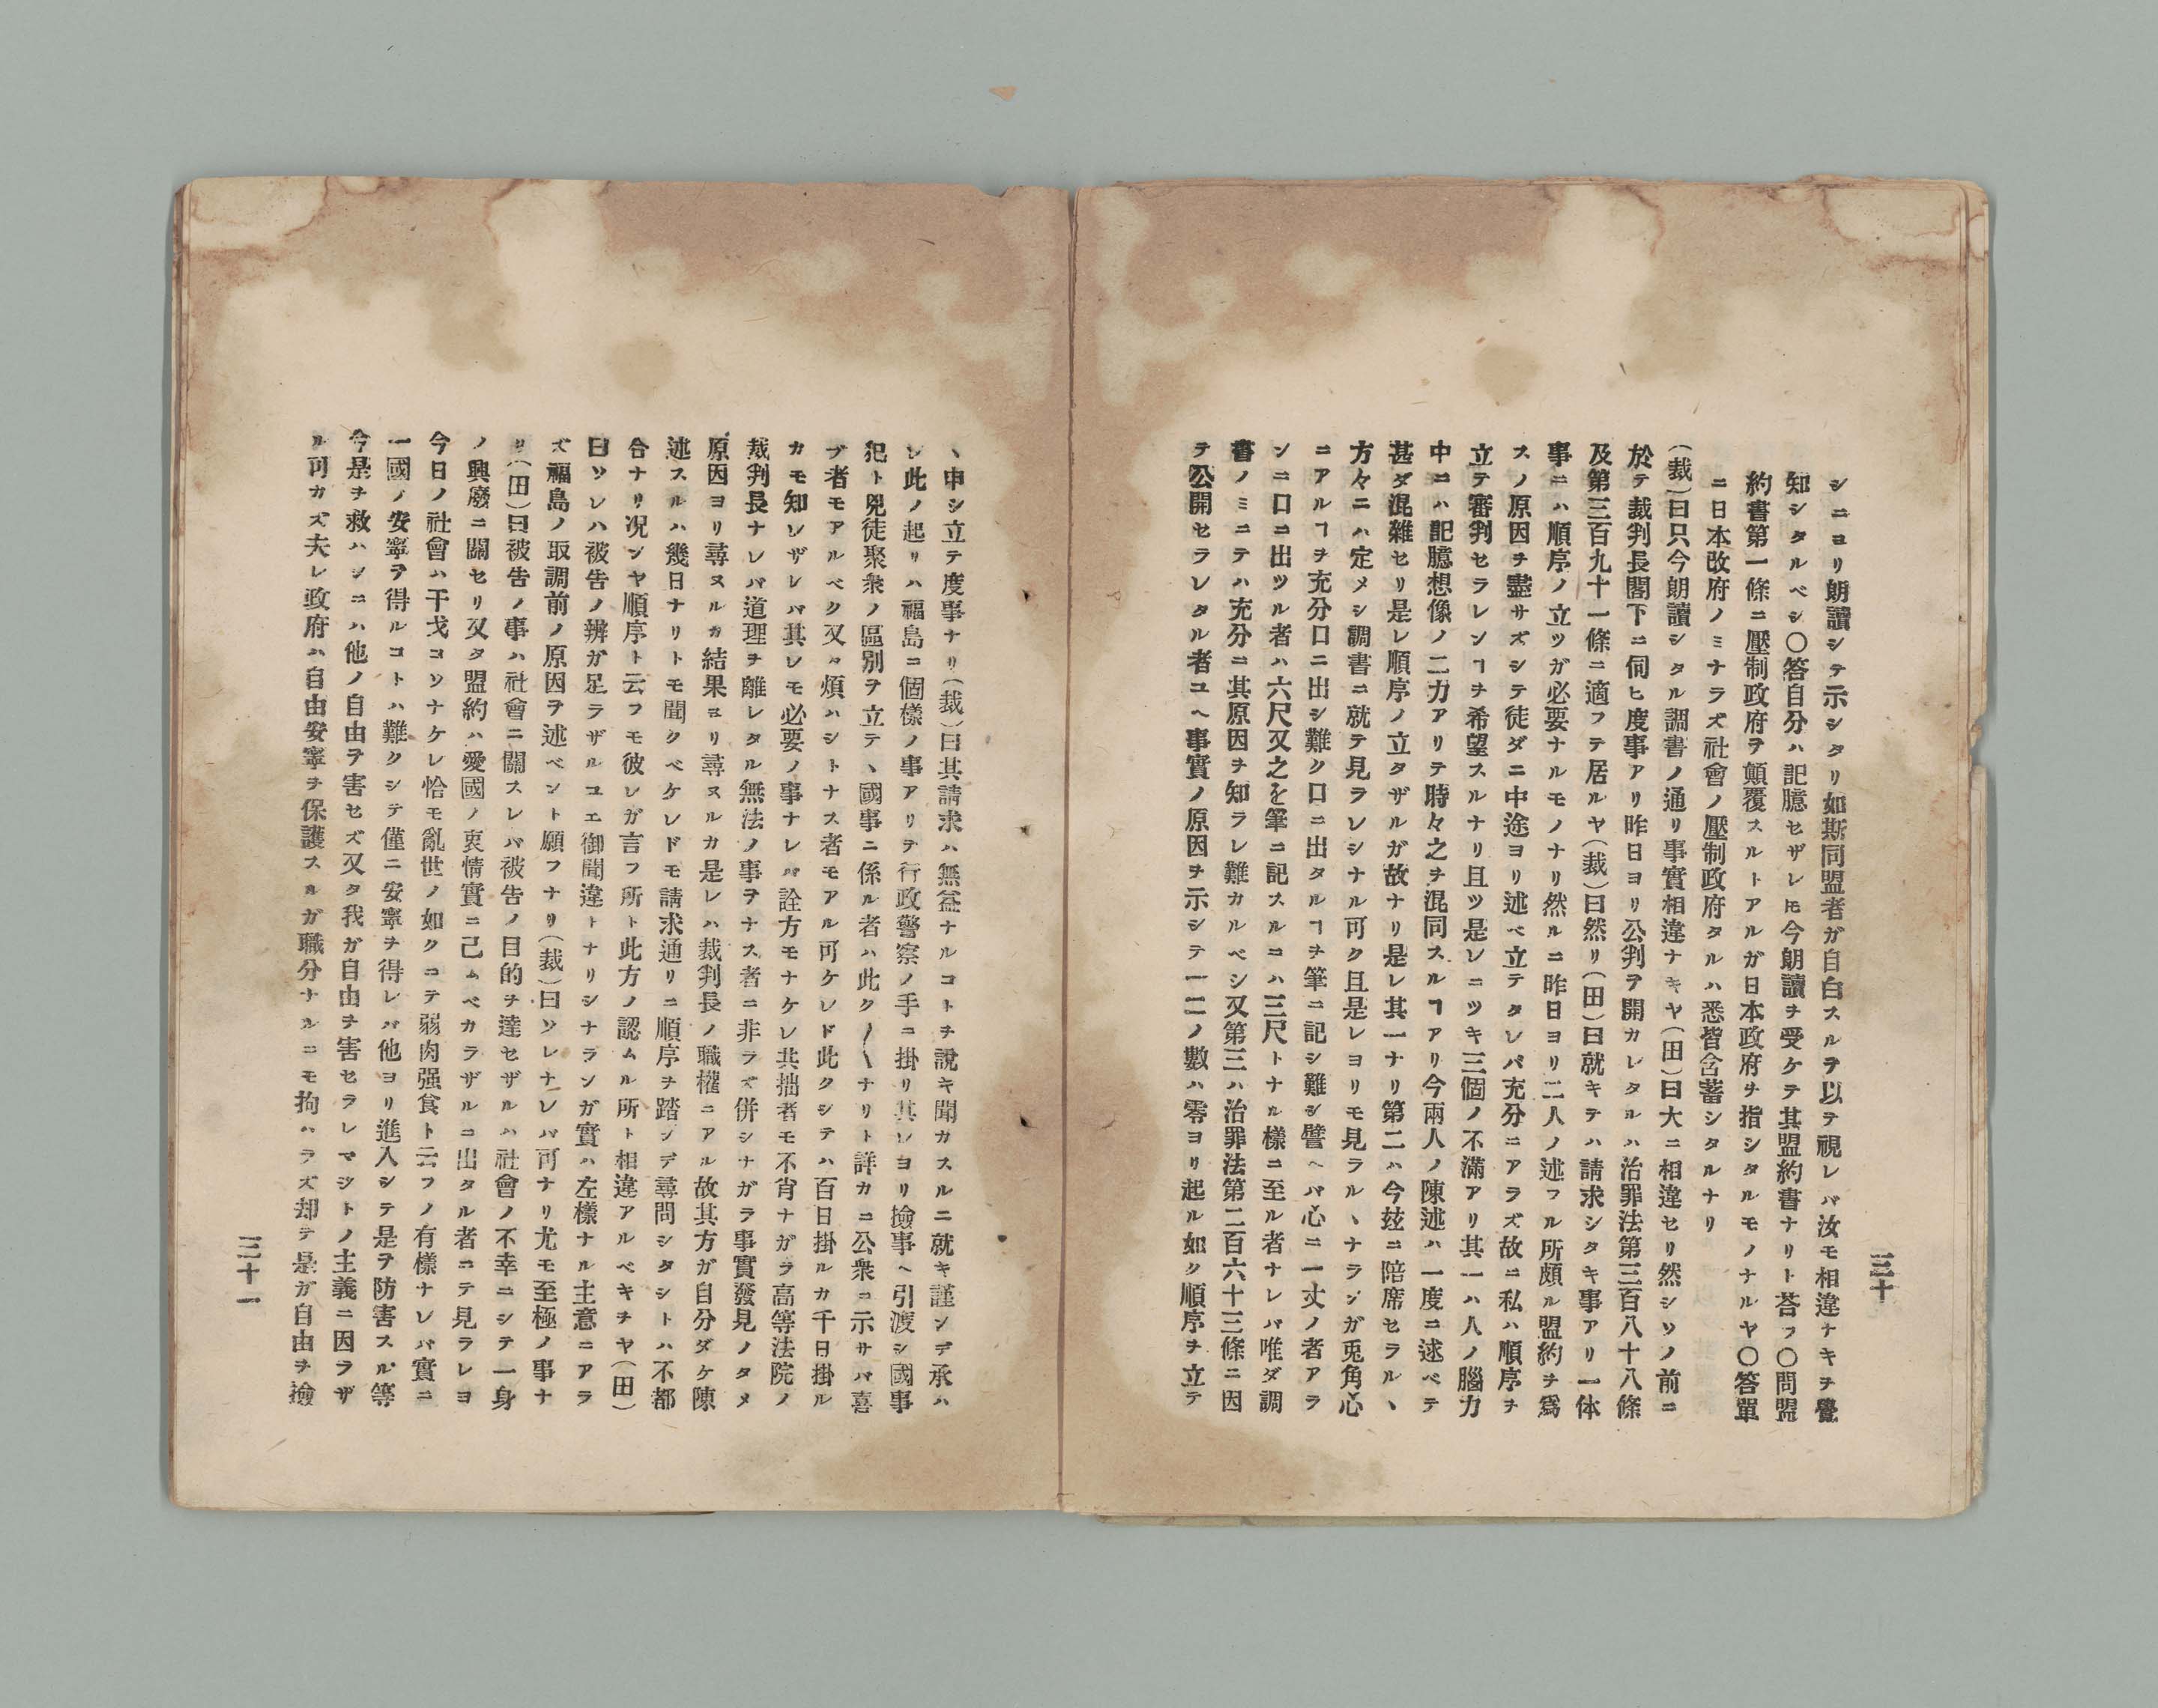 シニヨリ朗讀シテ示シタリ如斯同盟者ガ自白スルヲ以テ視レバ汝モ相違ナキヲ覺
知シタルベシ〇答自分ハ記臆セザレ𪜈今朗讀ヲ受ケテ其盟約書ナリト荅フ〇問盟
約書第一條ニ壓制政府ヲ顛覆スルトアルガ日本政府ヲ指シタルモノナルヤ〇答單
ニ日本改府ノミナラズ社會ノ壓制政府タルハ悉皆含蓄シタルナリ
(裁)曰只今朗讀シタル調書ノ通リ事實相違ナキヤ(田)曰大ニ相違セリ然シソノ前ニ
於テ裁判長閣下ニ伺ヒ度事アリ昨日ヨリ公判ヲ開カレタルハ治罪法第三百八十八條
及第三百九十一條ニ適フテ居ルヤ(裁)曰然リ(田)曰就キテハ請求シタキ事アリ一体
事ニハ順序ノ立ツガ必要ナルモノナリ然ルニ昨日ヨリ二人ノ述フル所頗ル盟約ヲ爲
スノ原因ヲ盡サズシテ徒ダニ中途ヨリ述ベ立テタレバ充分ニアラズ故ニ私ハ順序ヲ
立テ審判セラレンヿヲ希望スルナリ且ツ是レニツキ三個ノ不滿アリ其一ハ人ノ腦力
中ニハ記臆想像ノ二力アリテ時々之ヲ混同スルヿアリ今兩人ノ陳述ハ一度ニ述ベテ
甚ダ混雜セリ是レ順序ノ立タザルガ故ナリ是レ其一ナリ第二ハ今玆ニ陪席セラルヽ
方々ニハ定メシ調書ニ就テ見ラレシナル可ク且是レヨリモ見ラルヽナランガ兎角心
ニアルヿヲ充分口ニ出シ難ク口ニ出タルヿヲ筆ニ記シ難シ譬ヘバ心ニ一丈ノ者アラ
ンニ口ニ出ツル者ハ六尺又之を筆ニ記スルニハ三尺トナル樣ニ至ル者ナレバ唯ダ調
書ノミニテハ充分ニ其原因ヲ知ラレ難カルベシ又第三ハ治罪法第二百六十三條ニ因
テ公開セラレタル者ユヘ事實ノ原因ヲ示シテ一二ノ數ハ零ヨリ起ル如ク順序ヲ立テ
三十
ヽ申シ立テ度事ナリ(裁)曰其請求ハ無益ナルコトヲ說キ聞カスルニ就キ謹ンデ承ハ
レ此ノ起リハ福島ニ個樣ノ事アリテ行政警察ノ手ニ掛リ其レヨリ撿事ヘ引渡シ國事
犯ト兇徒聚衆ノ區別ヲ立テヽ國事ニ係ル者ハ此ク〳〵ナリト詳カニ公衆ニ示サバ喜
ブ者モアルベク又々煩ハシトナス者モアル可ケレド此クシテハ百日掛ルカ千日掛ル
カモ知レザレバ其レモ必要ノ事ナレバ詮方モナケレ共拙者モ不肖ナガラ高等法院ノ
裁判長ナレバ道理ヲ離レタル無法ノ事ヲナス者ニ非ラズ併シナガラ事實發見ノタメ
原因ヨリ尋ヌルカ結果ヨリ尋ヌルカ是レハ裁判長ノ職權ニアル故其方ガ自分ダケ陳
述スルハ幾日ナリトモ聞クベケレドモ請求通リニ順序ヲ踏ンデ尋問シタシトハ不都
合ナリ况ンヤ順序ト云フモ彼レガ言フ所ト此方ノ認ムル所ト相違アルベキヲヤ(田)
曰ソレハ被告ノ辨ガ足ラザルユエ御聞違トナリシナランガ實ハ左樣ナル主意ニアラ
ズ福島ノ取調前ノ原因ヲ述ベント願フナリ(裁)曰ソレナレバ可ナリ尤モ至極ノ事ナ
リ(田)曰被告ノ事ハ社會ニ關スレバ被告ノ目的ヲ達セザルハ社會ノ不幸ニシテ一身
ノ興廢ニ關セリ又タ盟約ハ愛國ノ衷情實ニ已ムベカラザルニ出タル者ニテ見ラレヨ
今日ノ社會ハ干戈コソナケレ恰モ亂世ノ如クニテ弱肉强食ト云フノ有樣ナレバ實ニ
一國ノ安寧ヲ得ルコトハ難クシテ僅ニ安寧ヲ得レバ他ヨリ進入シテ是ヲ防害スル等
今是ヲ救ハンニハ他ノ自由ヲ害セズ又タ我ガ自由ヲ害セラレマジトノ主義ニ因ラザ
ル可カズ夫レ政府ハ自由安寧ヲ保護スルガ職分ナルニモ拘ハラズ却テ是ガ自由ヲ撿
三十一